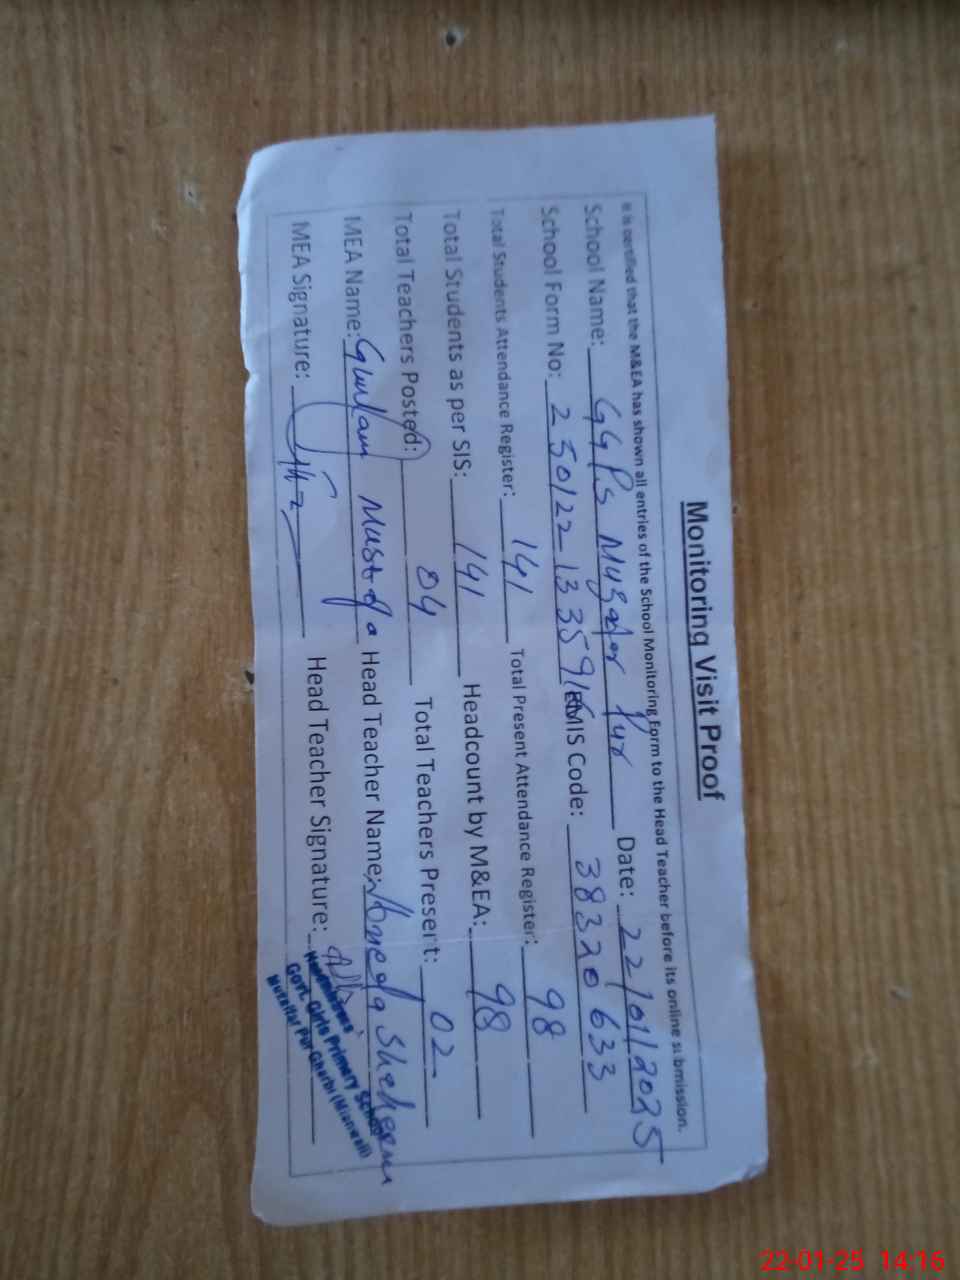 Monitoring Visit Proof
It is certified that the M&EA has shown all entries of the School Monitoring Form to the Head Teacher before its online submission.
School Name: GGPS Muzafar Pur Date: 22/01/2025
School Form No: 250122133591 EMIS Code: 38320633
Total Students Attendance Register: 141 Total Present Attendance Register: 98
Total Students as per SIS: 141 Headcount by M&EA: 98
Total Teachers Posted: 04 Total Teachers Present: 02
MEA Name: Ghulam Mustafa Head Teacher Name: Shaheen
MEA Signature: Head Teacher Signature:
Headmistress
Govt. Girls Primary School
Muzaffar Pur Gharbi (Mianwali)
22-01-25 14:16